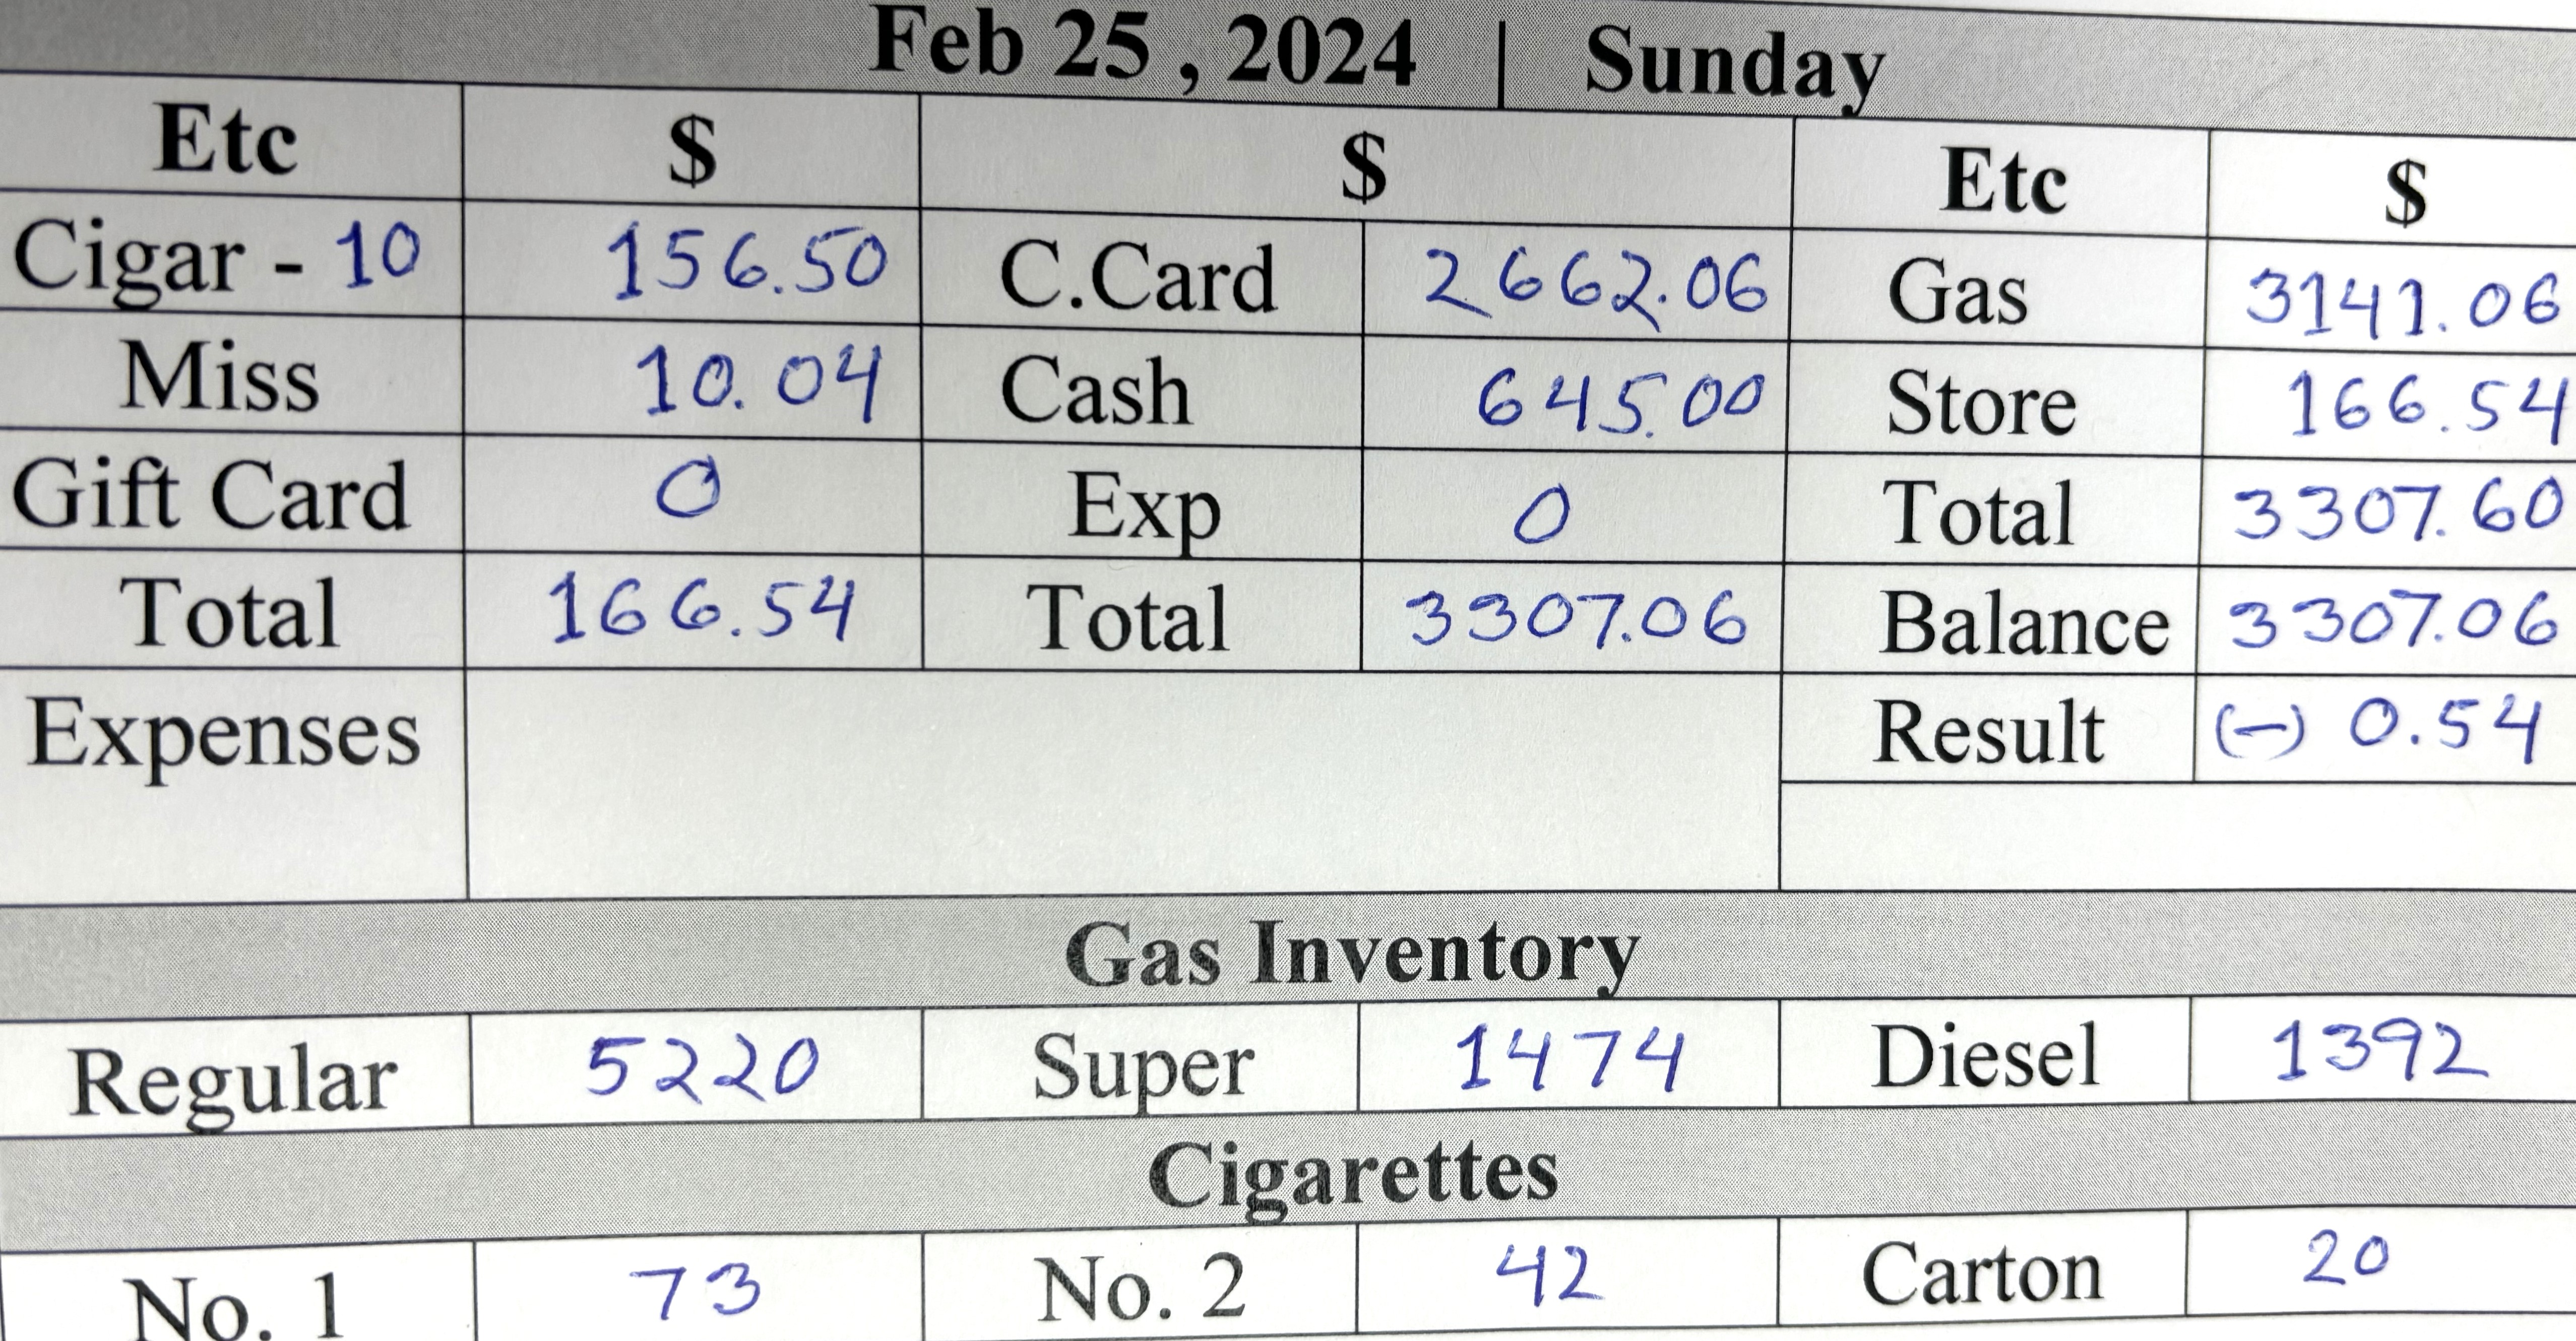 Feb 25 , 2024 | Sunday
Etc $ $ Etc $
Cigar - 10 156.50 C.Card 2662.06 Gas 3141.06
Miss 10.04 Cash 645.00 Store 166.54
Gift Card 0 Exp 0 Total 3307.60
Total 166.54 Total 3307.06 Balance 3307.06
Expenses Result (-) 0.54
Gas Inventory
Regular 5220 Super 1474 Diesel 1392
Cigarettes
No. 1 73 No. 2 42 Carton 20